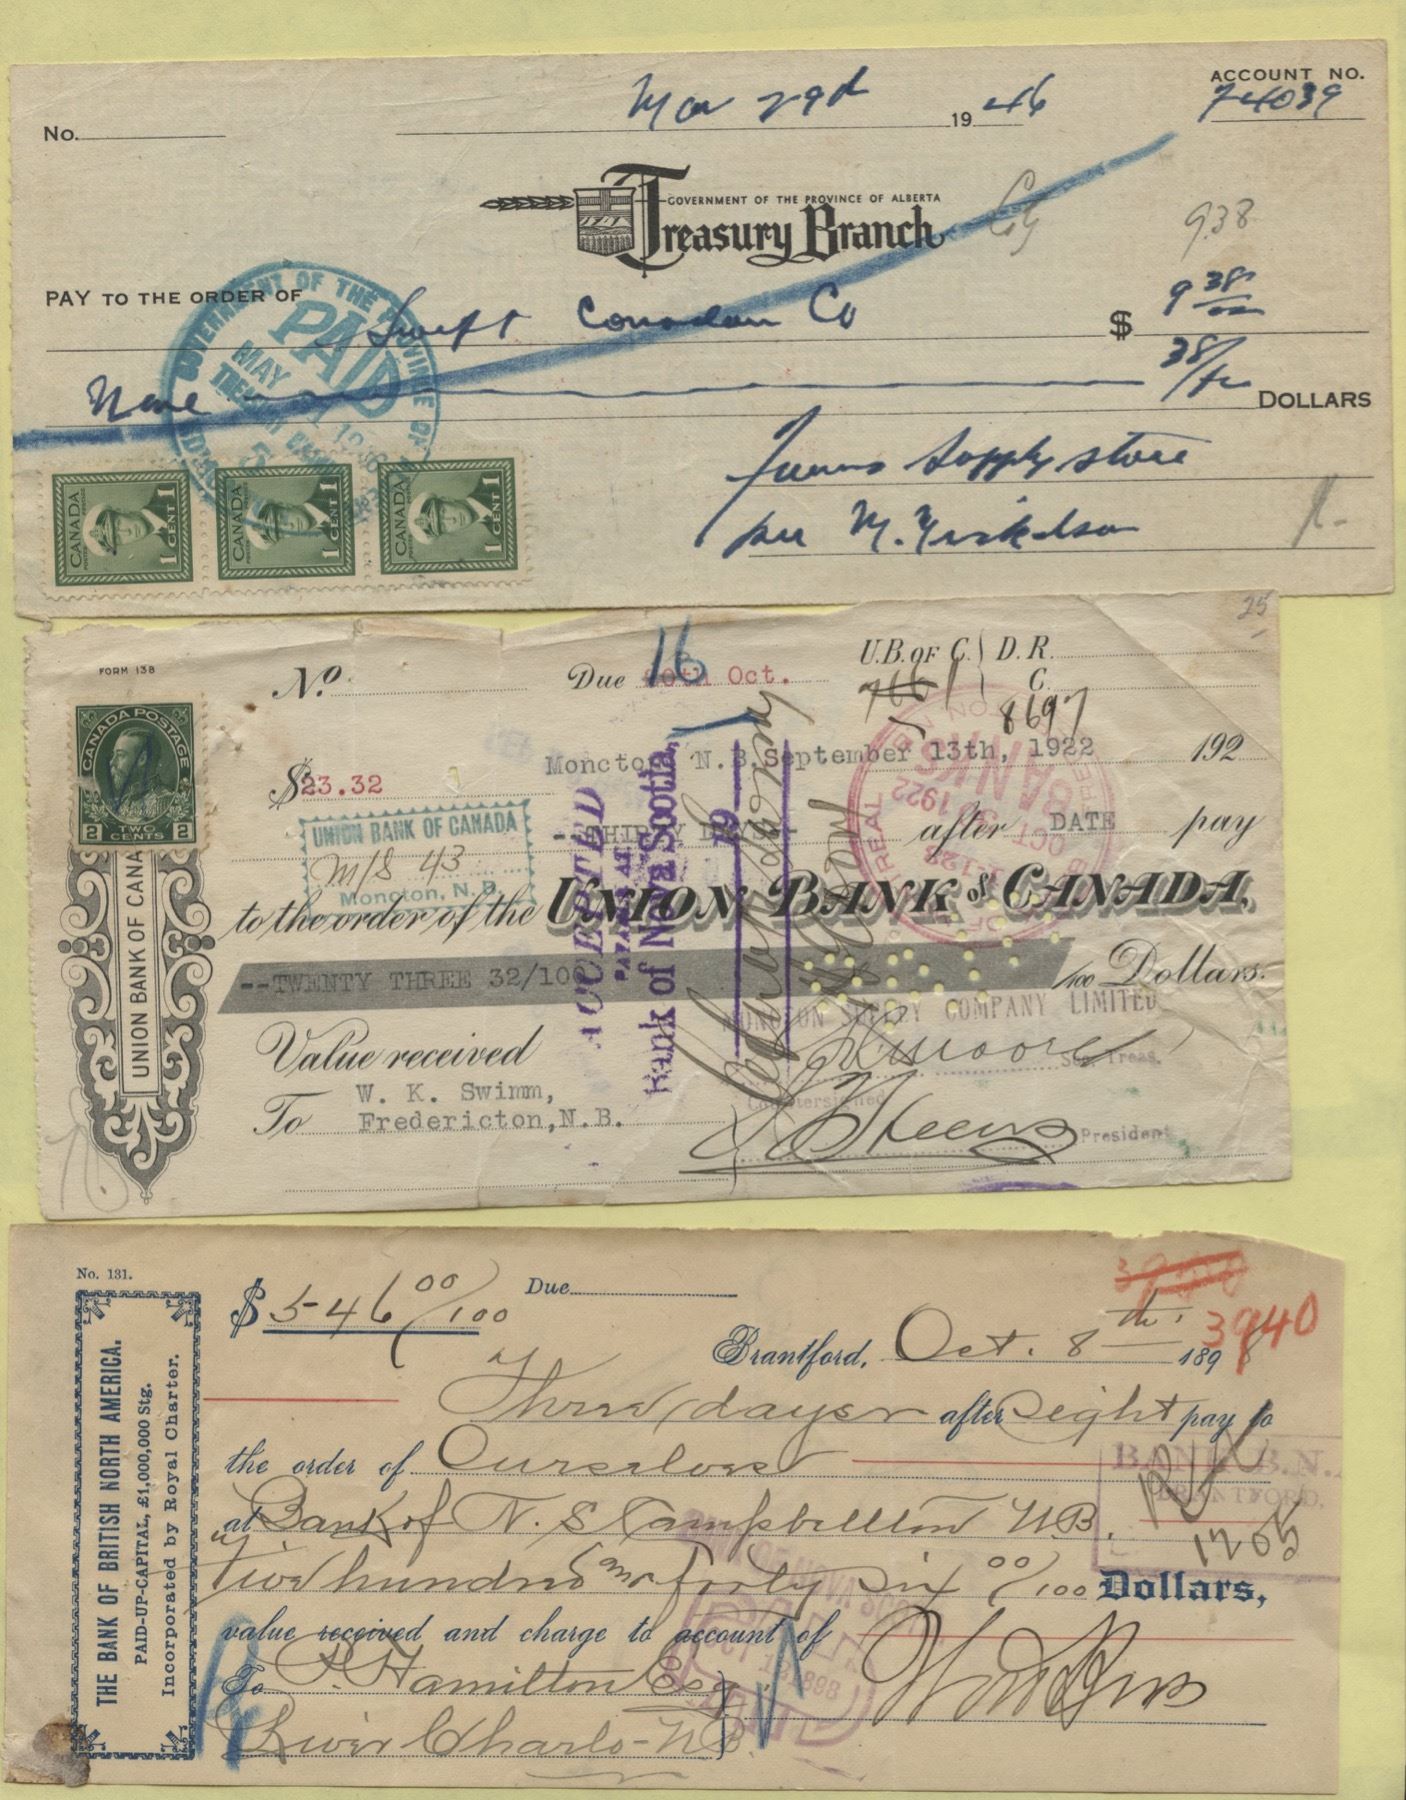 ACCOUNT NO.
74039
No.
Mar 29th 1946
GOVERNMENT OF THE PROVINCE OF ALBERTA
Treasury Branch
938
PAY TO THE ORDER OF Swift Canadian Co $ 9 38/100
GOVERNMENT OF THE PROVINCE OF
PAID
MAY 1 1946
Nine 38/100 DOLLARS
Supply Store
per M.
CANADA 1 CENT 1
CANADA 1 CENT 1
CANADA 1 CENT 1
25
FORM 138
No. Due 20th Oct. 16 U.B. OF C. D. R.
C.
766 8697
CANADA POSTAGE
2 TWO CENTS 2
$23.32
Moncton N.B. September 13th, 1922 192
UNION BANK OF CANADA
M/S 43
Moncton, N.B.
--THIRTY DAYS-- after DATE pay
to the order of the UNION BANK of CANADA,
--TWENTY THREE 32/100 /100 Dollars.
ACCEPTED
PAYABLE AT
Bank of Nova Scotia,
19
OCT 1922
UNION BANK OF CANA
MONCTON SUPPLY COMPANY LIMITED
Value received
Sec. Treas.
To W. K. Swimm,
Fredericton, N.B.
Countersigned
President
No. 131.
THE BANK OF BRITISH NORTH AMERICA.
PAID-UP-CAPITAL, £1,000,000 Stg.
Incorporated by Royal Charter.
$ 546 00/100 Due
3940
Brantford, Oct. 8th 1898
Three days after Sight pay to
the order of Ourselves
BANK B.N.A.
BRANTFORD,
1205
at Bank of N. S. Campbellton N.B.
Five hundred and forty six 00/100 Dollars,
value received and charge to account of
BANK OF NOVA SCOTIA
PAID
OCT 13 1898
To P. Hamilton Esq.
River Charlo - N.B.